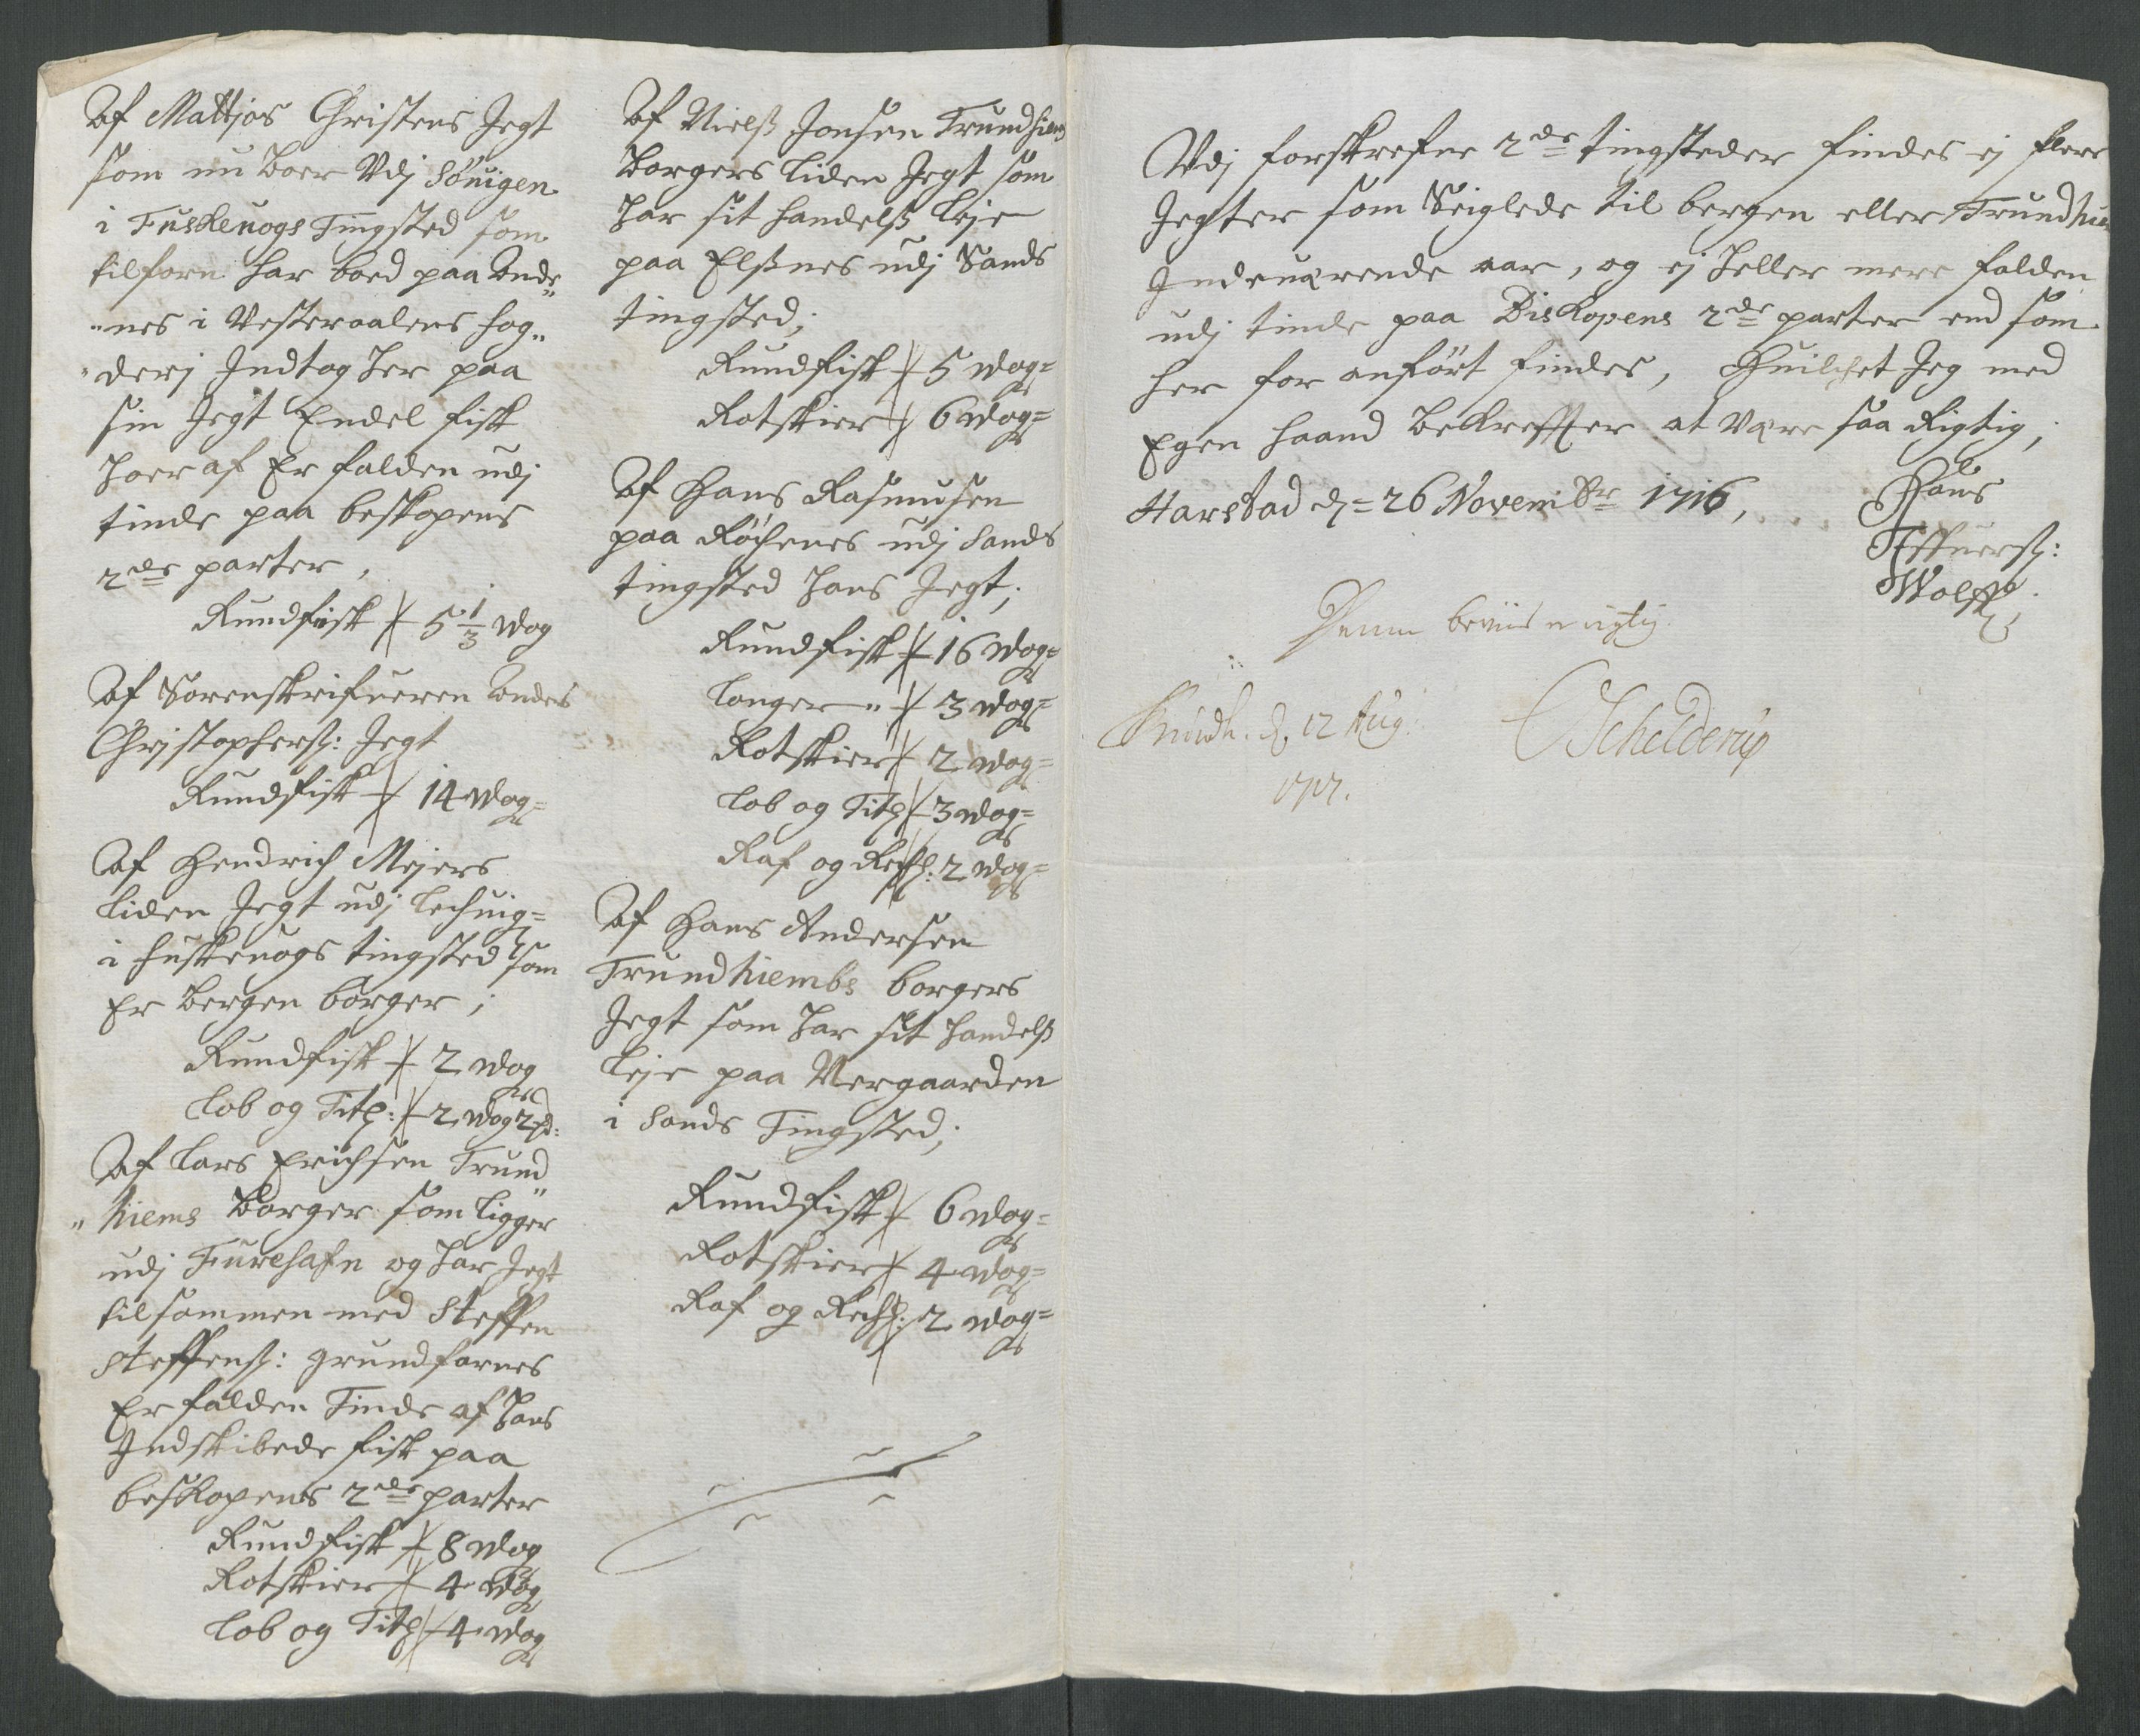 Af Mattjos Christens Jegt
som nu boer Vdj Sönigen
i Fuskeuogs Tingsted som
tilforn har boed paa Ande„
„nes i Vesteraalens fog„
„derj Indtog her paa
sin Jegt Endel fisk
Hoer af Er falden udj
tinde paa beskopens
2de parter,
Rundfisk 5 1/3 Wog
Af Sorenskrifueren Anders
Chrjstophersß: Jegt
Rundfisk 14 Wog=
Af Hendrich Mejers
liden Jegt udj
i fuskeuogs tingsted som
Er Bergen borger;
Rundfisk 2 Wog
Lob og Titl: 2 Wog 2 pd:
Af Lars Erichsen Trund„
„hiems Borger som ligger
udj Furehafn og har Jegt
tilsammen med Steffen
Steffensß: grundfarnes
Er falden Tinde af hans
Indskibede fisk paa
beskopens 2de parter
Rundfisk 8 Wog
Rotskier 4 Wog
Lob og Titl 4 Wog
Af Nielß Jonsen Trundhiems
Borgers liden Jegt som
har sit handelß leje
paa Elßnes udj Sands
tingsted;
Rundfisk 5 Wog=
Rotskier 6 Wog=
Af Hans Rasmusen
paa Röckenes udj Sands
tingsted hans Jegt;
Rundfisk 16 Wog=
Langer „ 3 Wog=
Rotskier 2 Wog=
Lob og Titl 3 Wog=
Raf og Rech: 2 Wog=
Af Hans Andersen
Trundhiembs borgers
Jegt som har sit handelß
leje paa Vergaarden
i Sands Tingsted;
Rundfisk 6 Wog=
Rotskier 4 Wog=
Raf og Rech: 2 Wog=
Vdj forskrefne 2de tingsteder findes ej flere
Jegter som Seiglede til bergen eller Trundhiem
Indeuærende aar, og ej heller mere falden
udj tinde paa Biskopens 2de parter end som
her for anfört findes, Huilchet Jeg med
Egen haand bekreffter at være saa Rigtig;
Harstad d= 26 Novembr 1716,
Hans
Wolff
Denne beviis er rigtig
Trundh. d. 12 Aug:
1717.
Schelderup